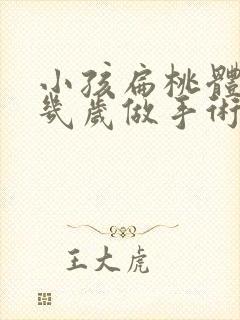 小孩扁桃體
幾歲做手術
王大虎